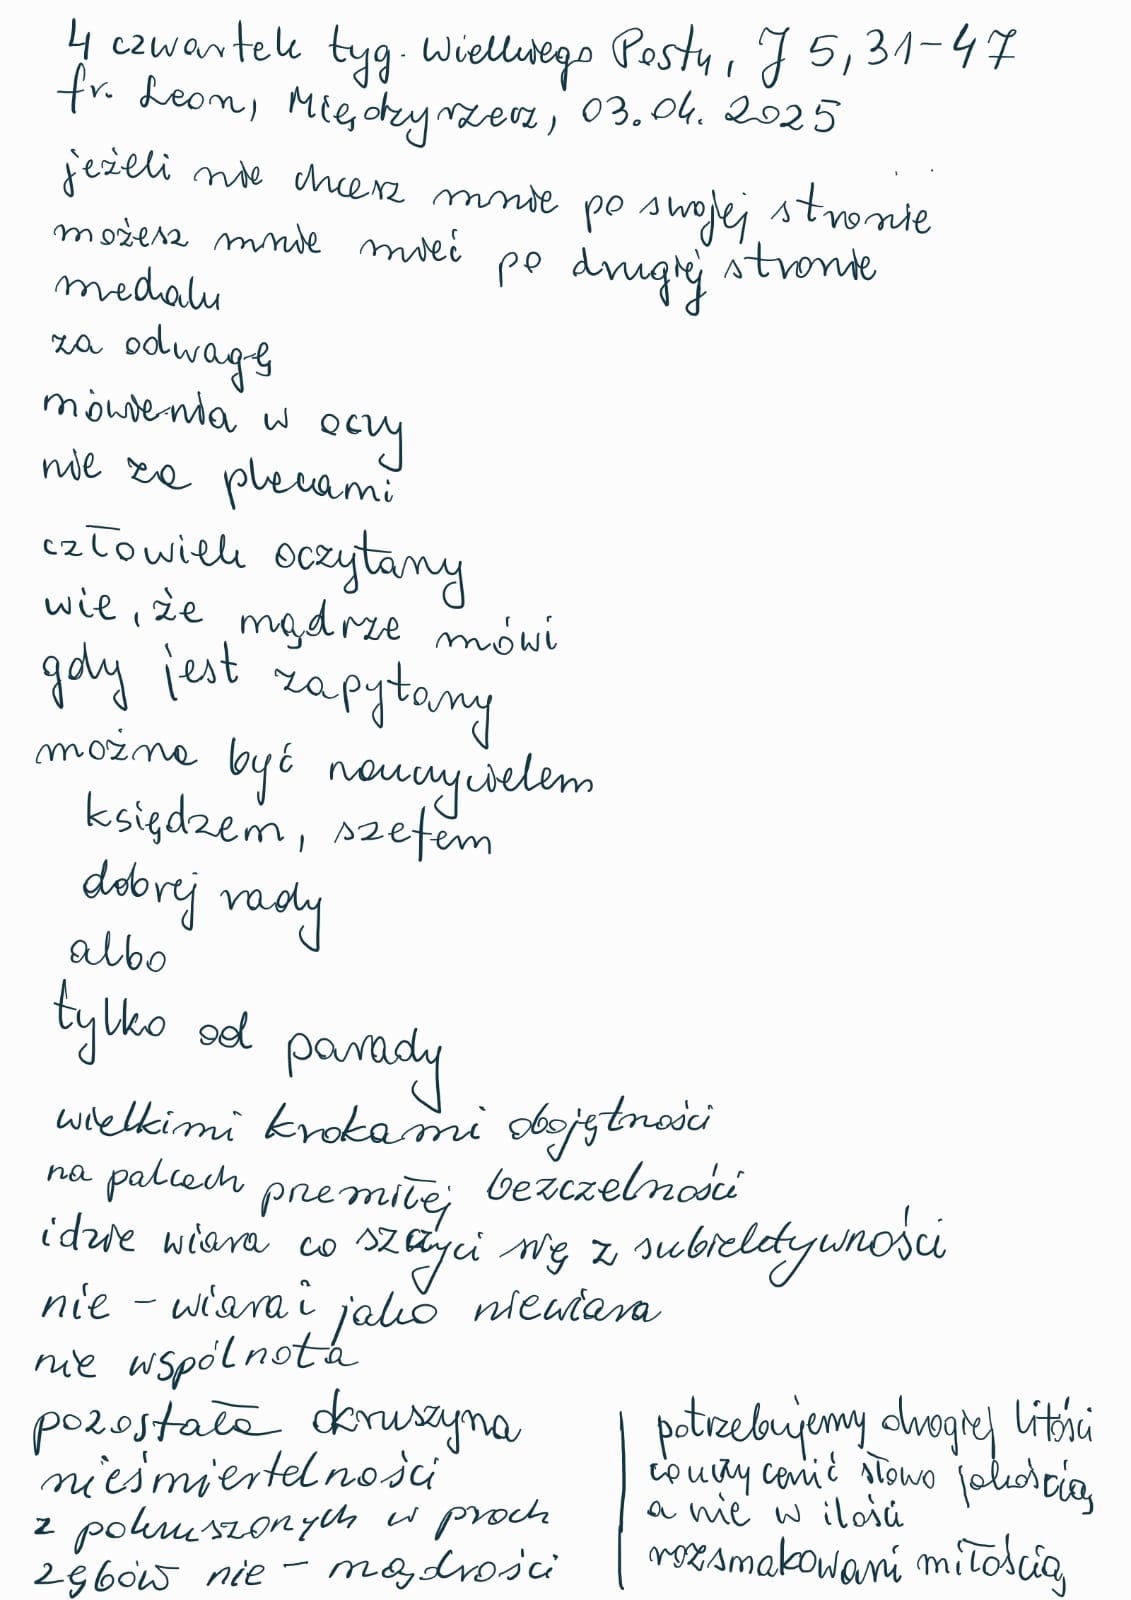 4 czwartek tyg. Wielkiego Postu, J 5,31-47
fr. Leon, Międzyrzecz, 03.04.2025
jeżeli nie chcesz mnie po swojej stronie
możesz mnie mieć po drugiej stronie
medalu
za odwagę
mówienia w oczy
nie za plecami
człowiek oczytany
wie, że mądrze mówi
gdy jest zapytany
można być nauczycielem
księdzem, szefem
dobrej rady
albo
tylko od parady
wielkimi krokami obojętności
na palcach premiłej bezczelności
idzie wiara co szczyci się z subiektywności
nie - wiara i jako niewiara
nie wspólnota
pozostała okruszyna
nieśmiertelności
z pokruszonych w proch
zębów nie - mądrości
potrzebujemy drogiej litości
co uczy cenić słowo jakością
a nie w ilości
rozsmakowani miłością